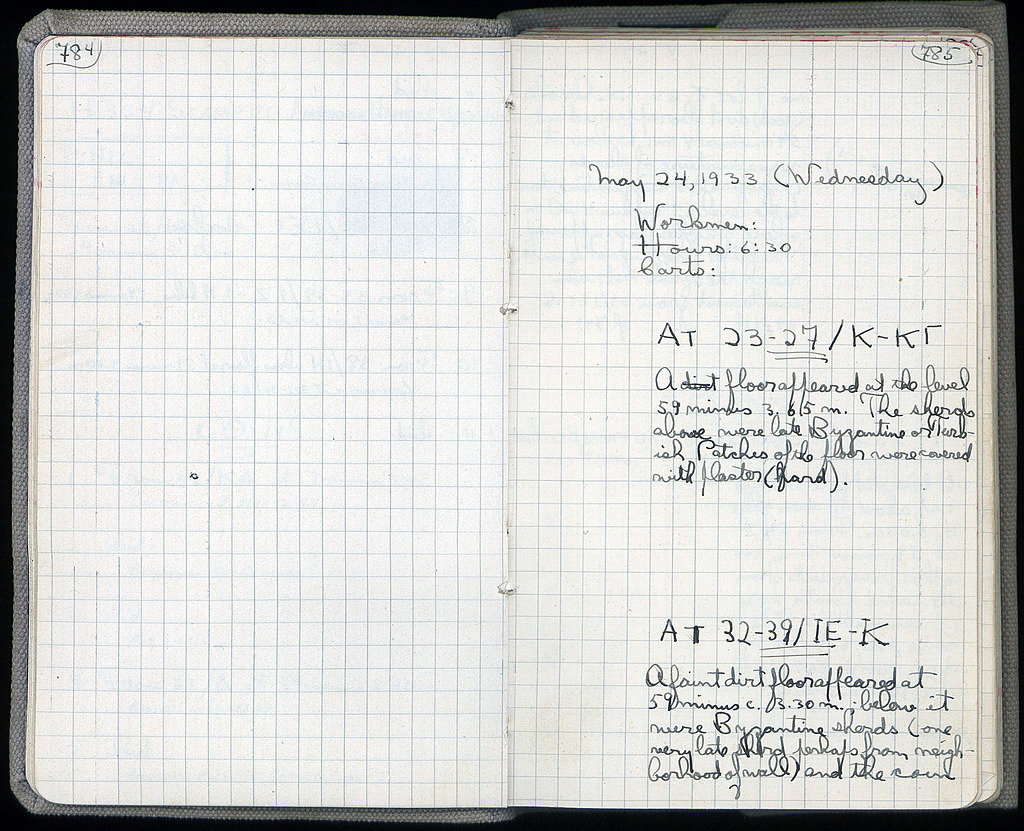 784
785
May 24, 1933 (Wednesday)
Workmen:
Hours: 6:30
Carts:
AT 23-27/K-KΓ
A dirt floor appeared at the level
59 minus 3.65 m. The sherds
above were late Byzantine or Turk-
ish. Patches of the floor were covered
with plaster (hard).
AT 32-39/IE-K
A faint dirt floor appeared at
59 minus c. 3.30 m.; below it
were Byzantine sherds (one
very late sherd perhaps from neigh-
borhood of wall) and the coin